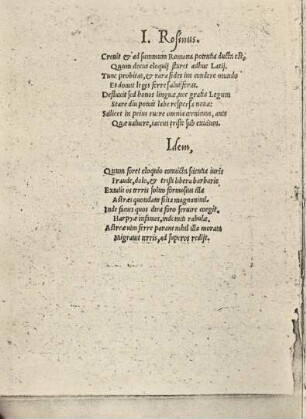 I. Rosinus.
Creuit & ad summum Romana potentia ducta est,
Quum decus eloquij staret adhuc Latij.
Tunc probitas, & rara fides in eundere mundo
Et domi leges ferre salutiferas.
Defluxit sed honos linguæ, nec gratia Legum
Stare diu potuit labe respersa noua:
Scilicet in prius ruere omnia
Quæ valuere, iacent tristi sub exitium.
Idem,
Quum foret eloquio coniuncta scientia iuris
Fraude, dolo, & tristi libera barbarie.
Extulit os terris solito formosius illa
Astræa quondam filia magnanimi.
Inde simul quos dira foro seruire coegit
Harpyæ insimiles, indomiti rabulæ,
Astræam ferre parant nihil illa morata
Migrauit terris, ad superos redijt.